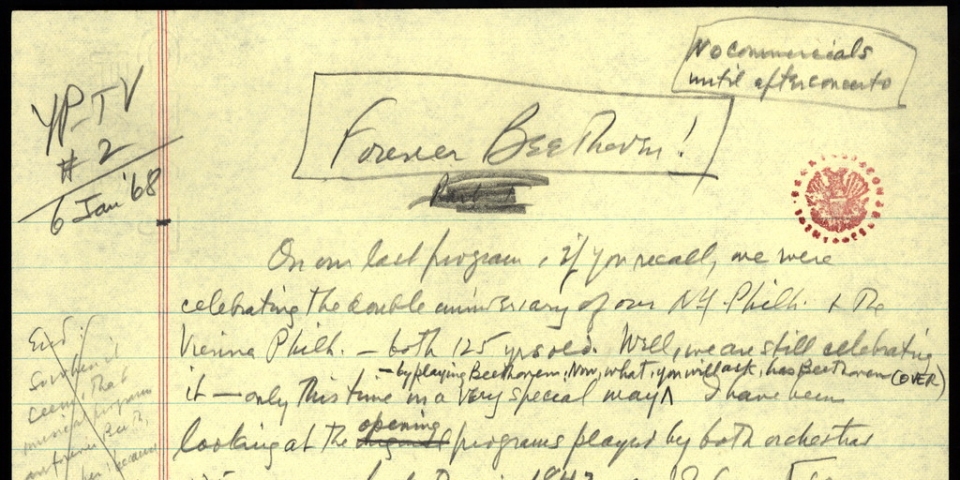 No commercials
until after concerto
YP-TV
# 2
6 Jan '68
Forever Beethoven!
Part 1
On our last program, if you recall, we were
celebrating the double anniversary of our NY Philh. + the
Vienna Philh. — both 125 yrs old. Well, we are still celebrating
— by playing Beethoven. Now, what, you will ask, has Beethoven (OVER)
it — only this time in a very special way^ I have been
opening
looking at the programs played by both orchestras
1842
End:
So when it
seems that